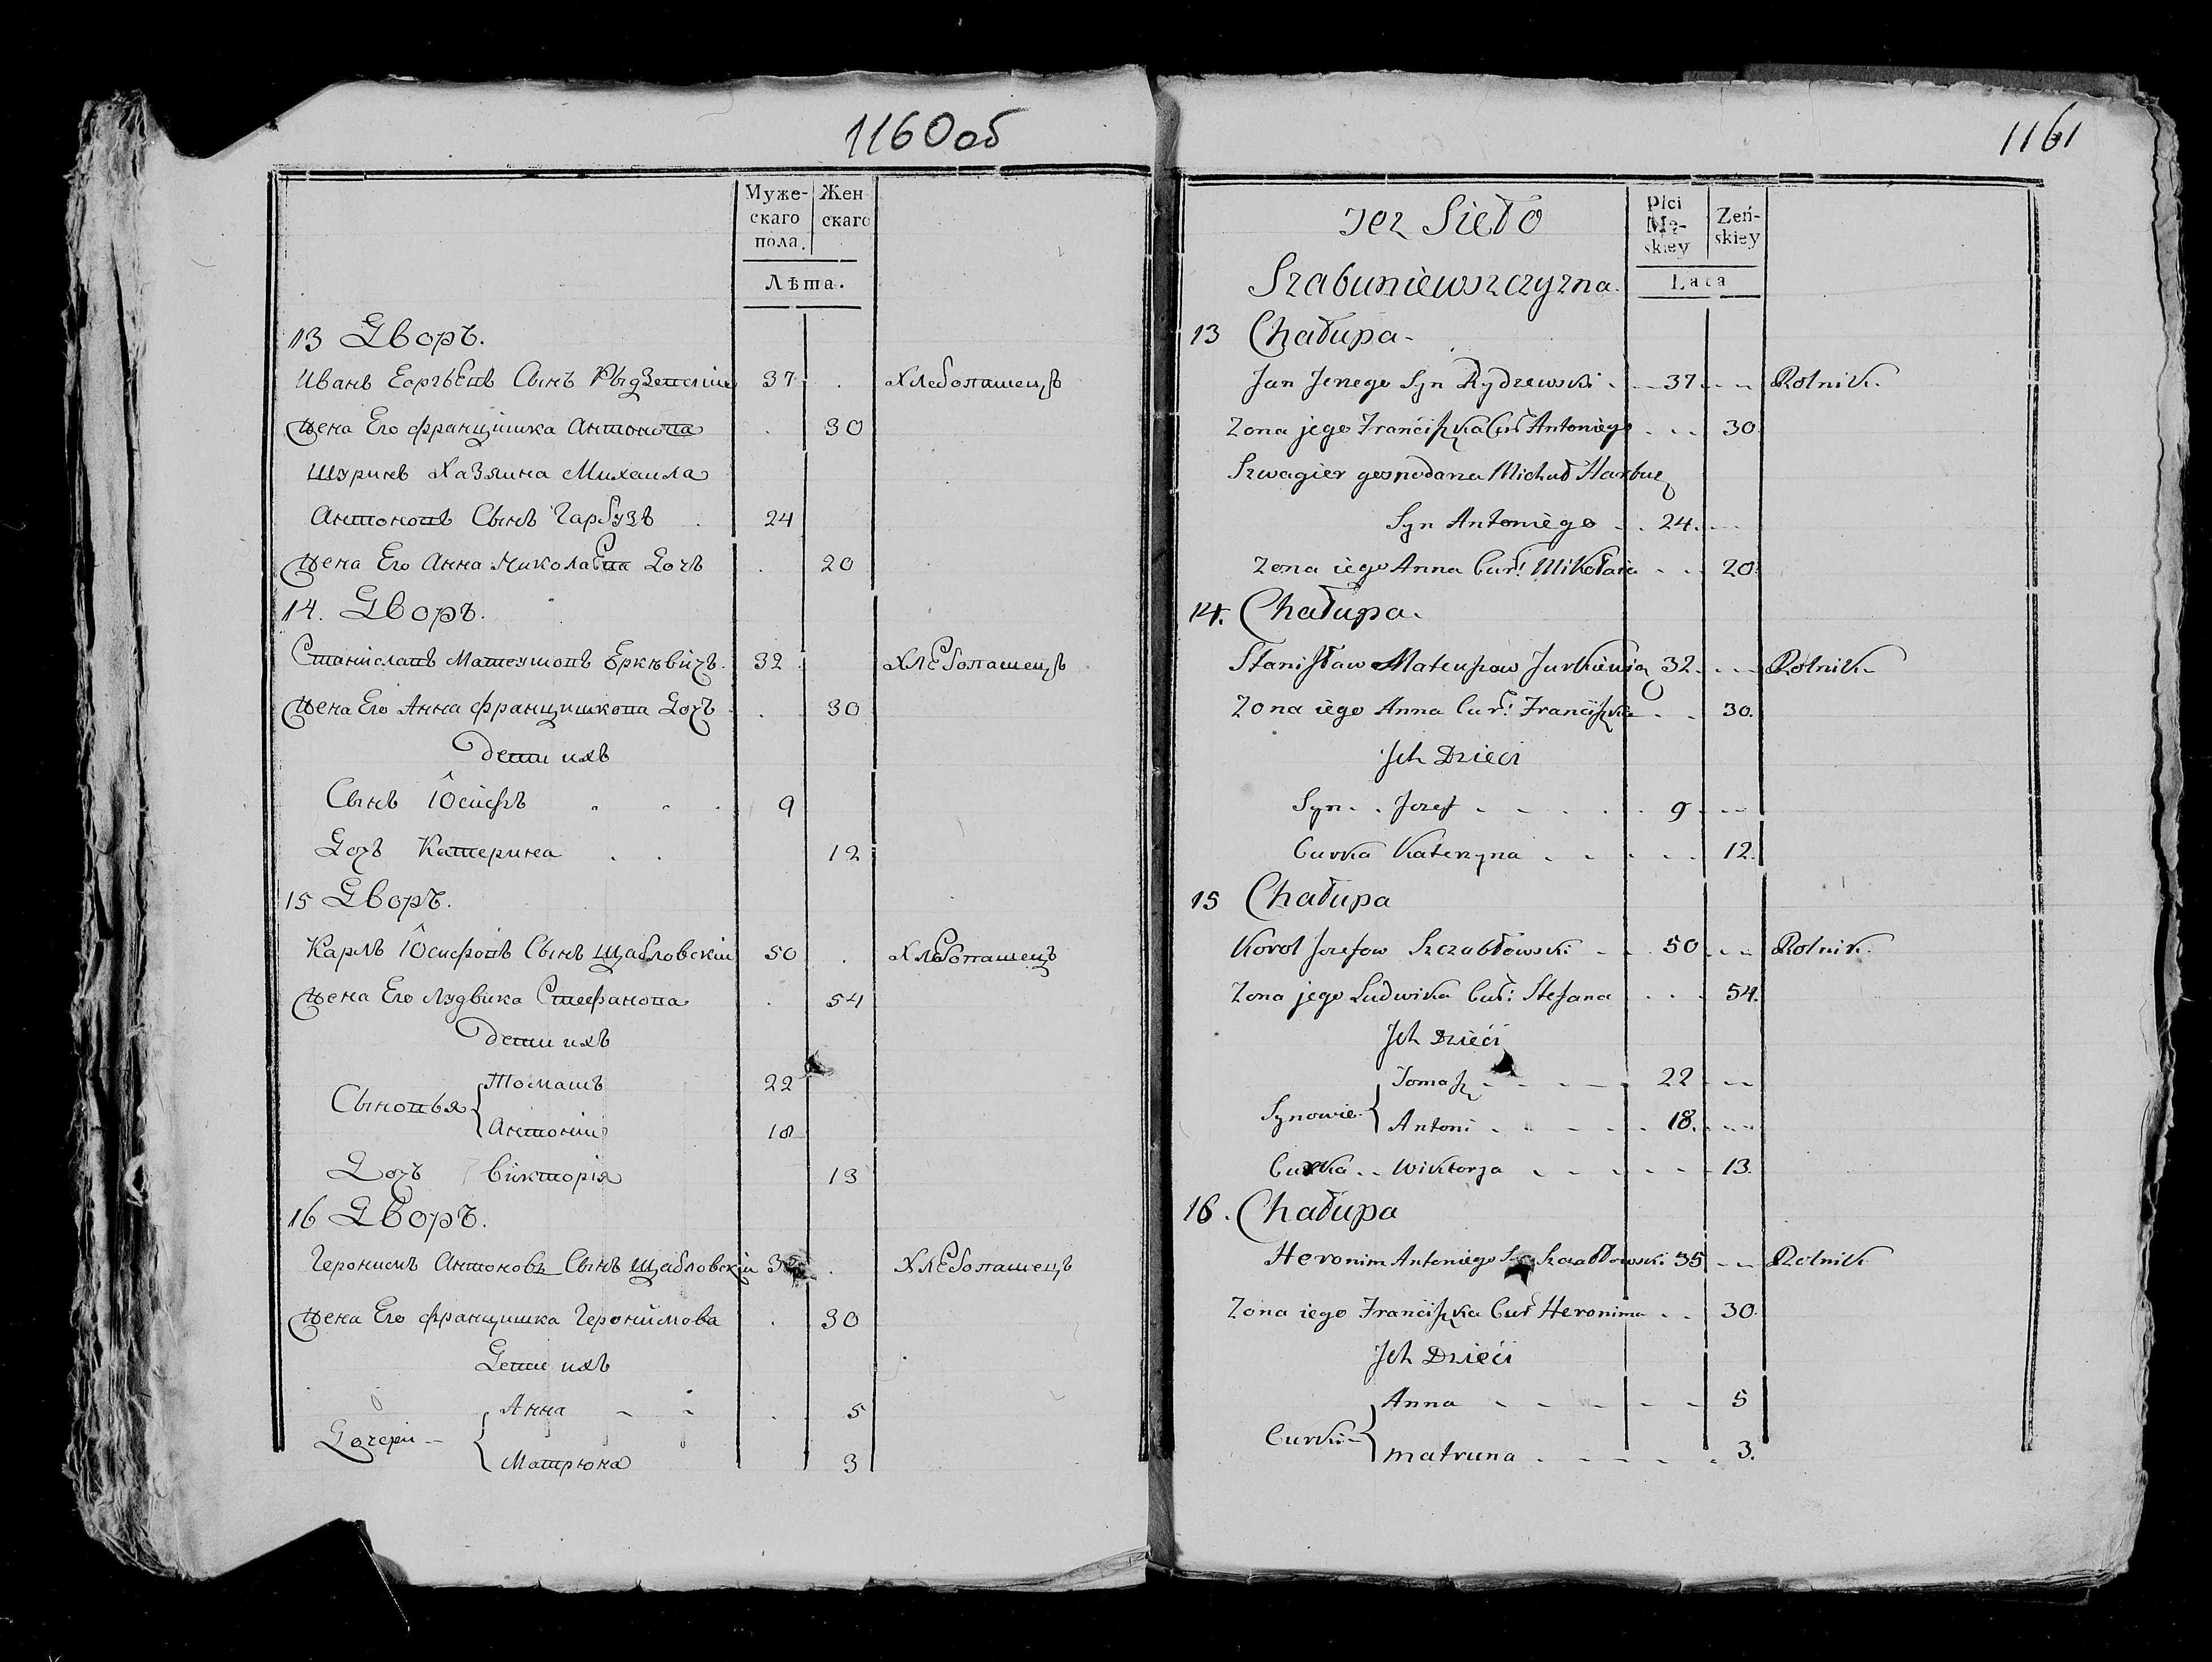 1160об
Муже-
скаго
пола.
Жен
скаго
Лѣта.
13 Дворъ.
Иванъ Еоргьевъ Сынъ Рыдзевскiи 37 . хлебопашецъ
жена Его францiшка Антонова . 30
Шуринъ хазяина Михаила
Антоновъ Сынъ Гарбузъ . 24
жена Его Анна Миколаева Дочъ . 20
14. Дворъ.
Станiславъ Матеушовъ Еркѣвiчъ. 32 хлебопашецъ
жена Его Анна францишкова Дочъ . 30
дети ихъ
Сынъ Юсифъ . . . 9
Дочъ Катерина . . 12
15 Дворъ.
Карлъ Юсифовъ Сынъ Щабловскiи 50 . хлебопашецъ
жена Его Лудвика Стефанова . 54
дети ихъ
Томашъ 22
Сыновья
Антонiи 18
Дочъ Вiкторiя 13
16 Дворъ.
Геронимъ Антоновъ Сынъ Щабловскiи 35 . хлебопашецъ
жена Его францишка Геронiмова . 30
Дети ихъ
Анна - - . 5
Дочери -
Матрюна 3
1161
Jez Sieło
Szabuniewszczyzna.
Płci
Mę-
skiey
Zeń-
skiey
Lata
13 Chałupa -
Jan Jerzego Syn Rydzewski . - 37 - - Rolnik.
Zona jego Franciszka Cur Antoniego . . . 30
Szwagier gospodarza Michał Harbuz
Syn Antoniego - . 24. -
Zona iego Anna Cur: Mikołaia - . . 20.
14. Chałupa.
Stanisław Mateuszow Jurkiewicz 32. - - Rolnik -
Zona iego Anna Cur: Franciszka - . . 30.
Jch Dzieci
Syn - . Jozef - - . . . 9 - -
Curka Katerzyna . . . . . 12.
15 Chałupa
Korol Jozefow Szczabłowski - . 50 - - Rolnik.
Zona jego Ludwika Cur: Stefana . . . 54.
Jch Dzieci
Tomasz - - - - 22 - -
Synowie.
Antoni . . - - . 18. - -
Curka . . Wiktorja - - - - - - 13.
16. Chałupa
Heronim Antoniego Szczabłowski 35 - - Rolnik
Zona iego Franciszka Cur Heronima . . 30.
Jch Dzieci
Anna - - - - - - 5
Curki -
Matruna . - - - - . 3.